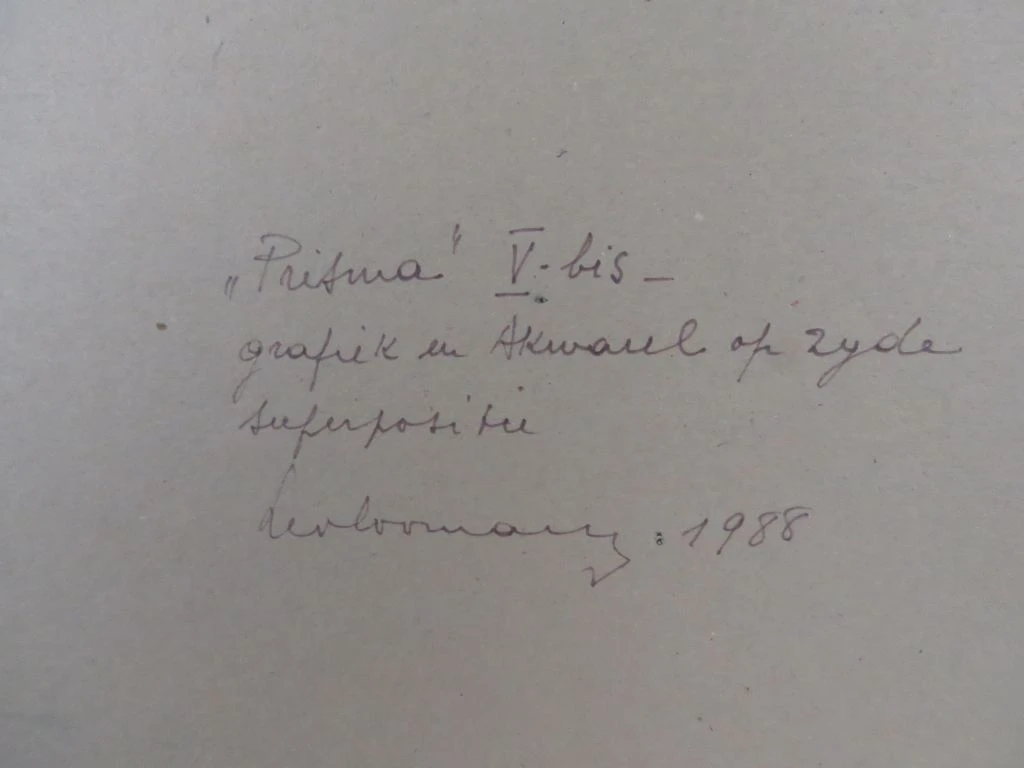 „Prisma" V-bis -
grafiek en Akwarel op zyde
superpositie
1988